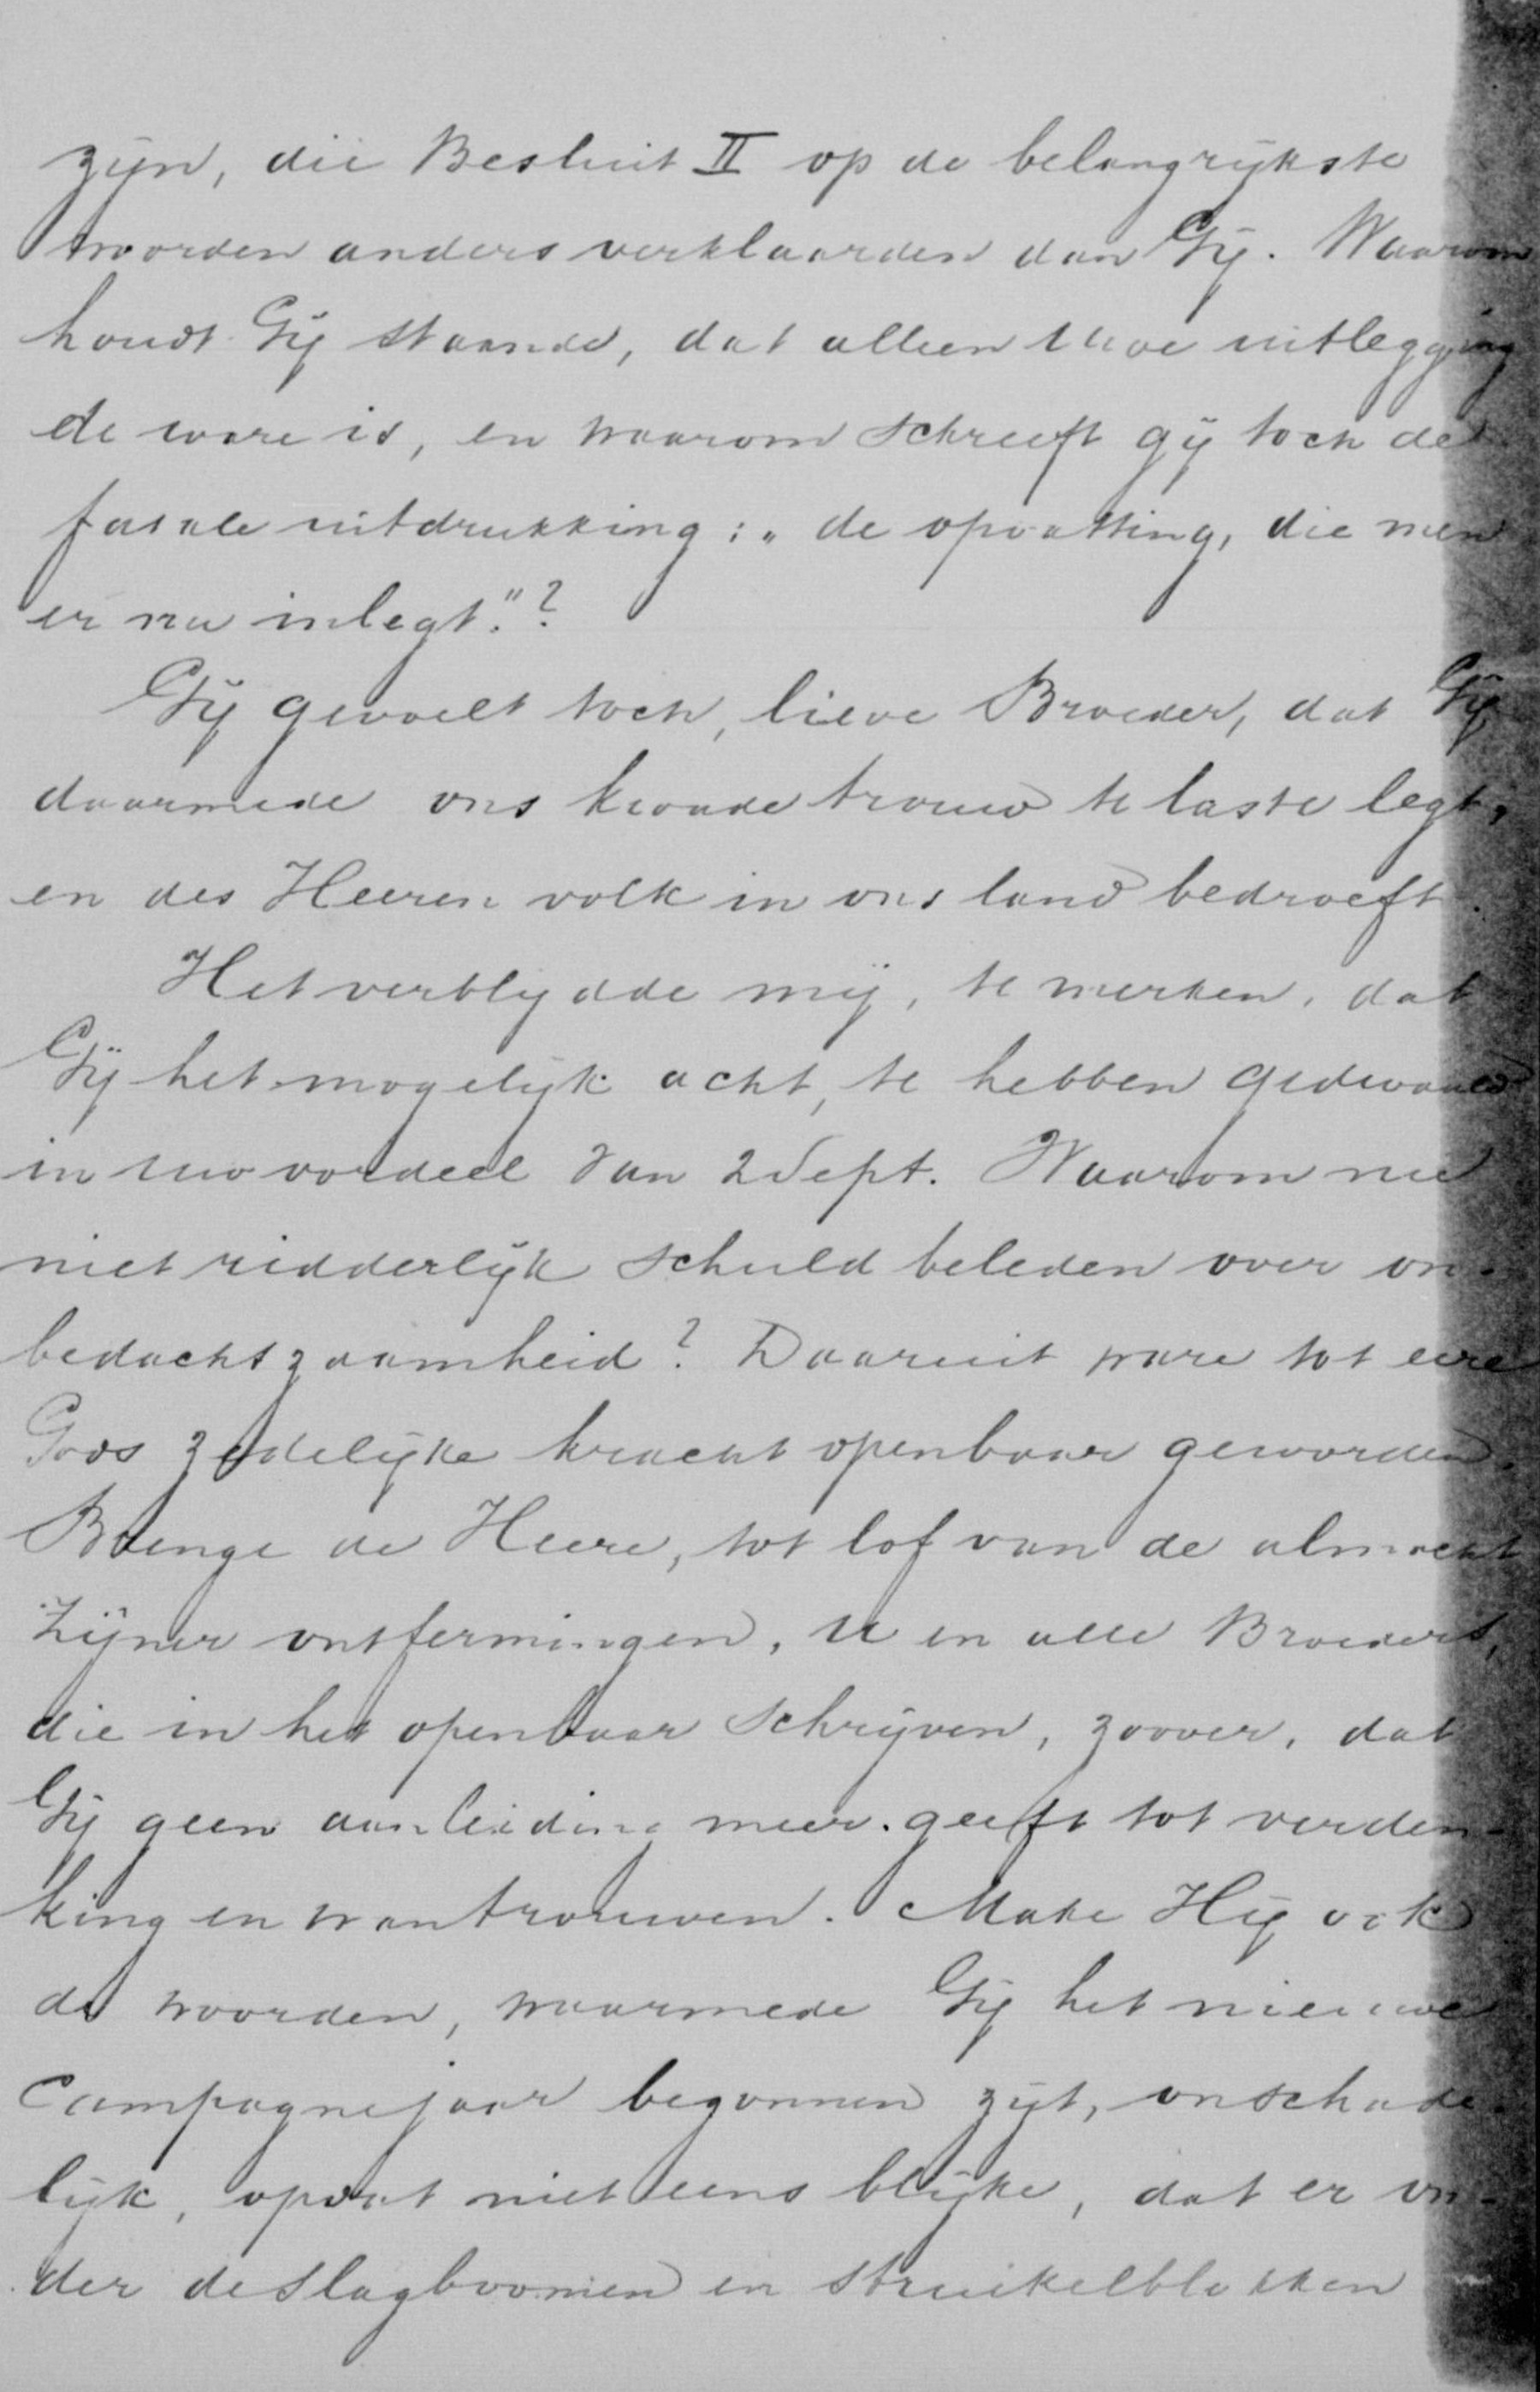 zijn, die Besluit II op de belangrijkste
woorden anders verklaarden dan Gij. Waarom
houdt Gij staande, dat alleen Uwe uitlegging
de ware is, en waarom schreeft gij toch de
fatale uitdrukking: „de opvatting, die men
er nu inlegt."?
Gij gevoelt toch, lieve Broeder, dat Gij
daarmede ons kwade trouw te laste legt,
en des Heeren volk in ons land bedroeft.
Het verblijdde mij, te merken, dat
Gij het mogelijk acht, te hebben gedwaald
in uw oordeel van 2 Sept. Waarom nu
niet ridderlijk schuld beleden over on-
bedachtzaamheid? Daaruit ware tot eere
Gods zedelijke kracht openbaar geworden.
Brenge de Heere, tot lof van de almacht
Zijner ontfermingen, U en alle Broeders,
die in het openbaar schrijven, zoover, dat
Gij geen aanleiding meer geeft tot verden-
king en wantrouwen. Make Hij ook
de woorden, waarmede Gij het nieuwe
Campagnejaar begonnen zijt, onschade-
lijk, opdat niet eens blijke, dat er on-
der de slagboomen en struikelblokken